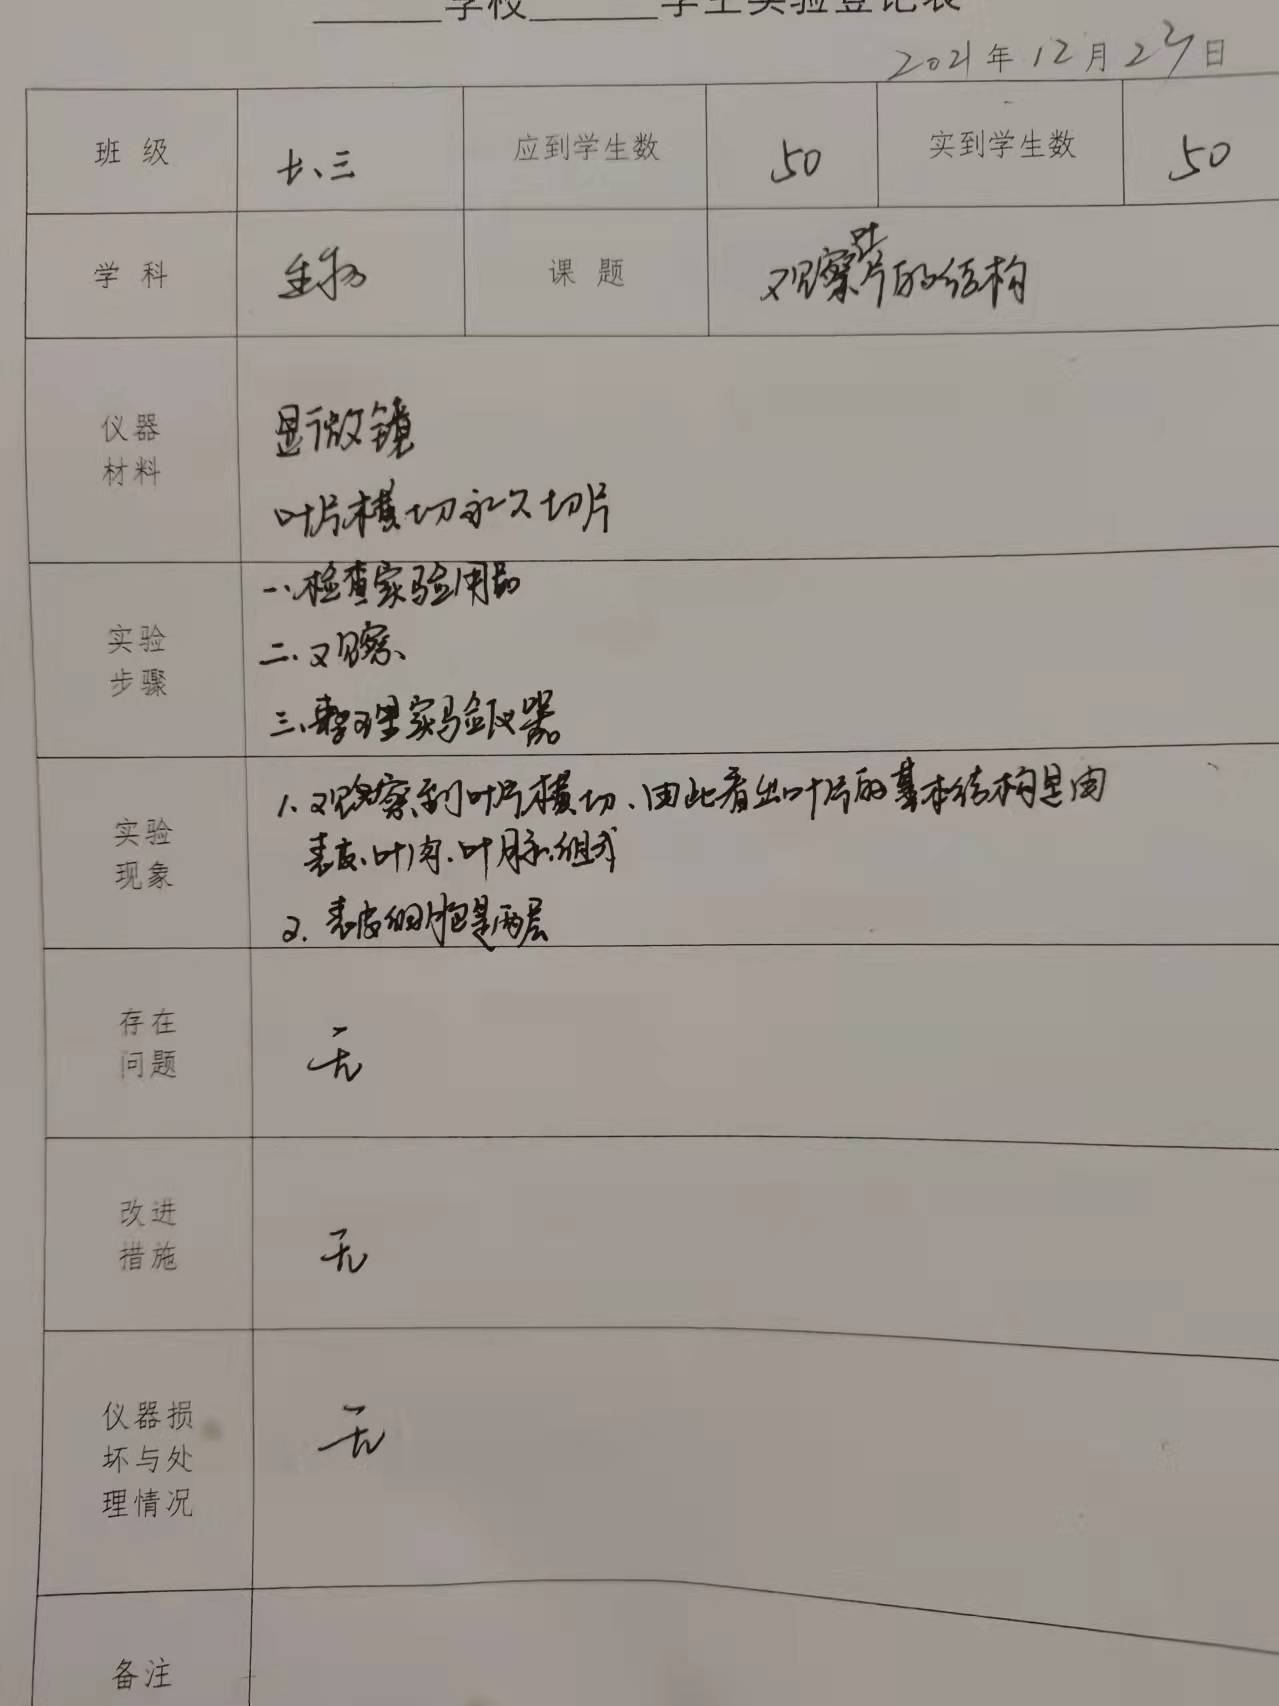 ______学校______学生实验登记表
2021年12月23日
班级 七、三 应到学生数 50 实到学生数 50
学科 生物 课题 观察叶片的结构
仪器
材料
显微镜
叶片横切永久切片
实验
步骤
一、检查实验用品
二、观察、
三、整理实验仪器
实验
现象
1. 观察到叶片横切、由此看出叶片的基本结构是由
表皮、叶肉、叶脉、组成
2. 表皮细胞是两层
存在
问题
无
改进
措施
无
仪器损
坏与处
理情况
无
备注